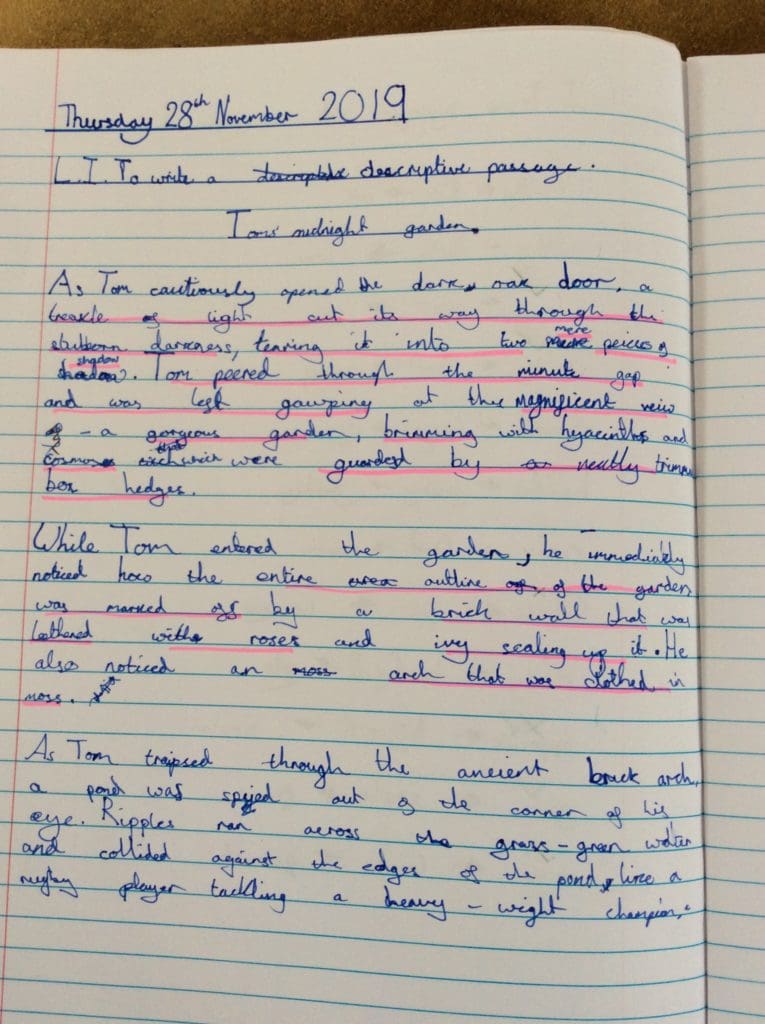 Thursday 28th November 2019
L.I. To write a descriptive passage.
Toms' midnight garden.
As Tom cautiously opened the dark, oak door, a
treakle of light cut its way through the
stubborn darkness, tearing it into two mere peices of
shadow. Tom peered through the minute gap
and was left gawping at the magnificent veiw
- a gorgeous garden, brimming with hyacinths and
cosmos that were guarded by neatly trimmed
box hedges.
While Tom entered the garden, he immediatly
noticed how the entire outline of the garden
was marked off by a brick wall that was
lathered with roses and ivy scaling up it. He
also noticed an arch that was clothed in
moss.
As Tom traipsed through the ancient brick arch,
a pond was spied out of the corner of his
eye. Ripples ran across the grass-green water
and collided against the edges of the pond, like a
rugby player tackling a heavy-wight champion.